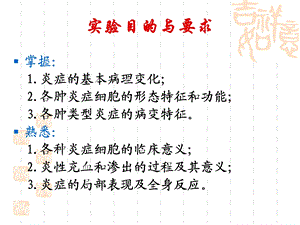 实验目的与要求
掌握:
1.炎症的基本病理变化;
2.各种炎症细胞的形态特征和功能;
3.各种类型炎症的病变特征。
熟悉:
1.各种炎症细胞的临床意义;
2.炎性充血和渗出的过程及其意义;
3.炎症的局部表现及全身反应。